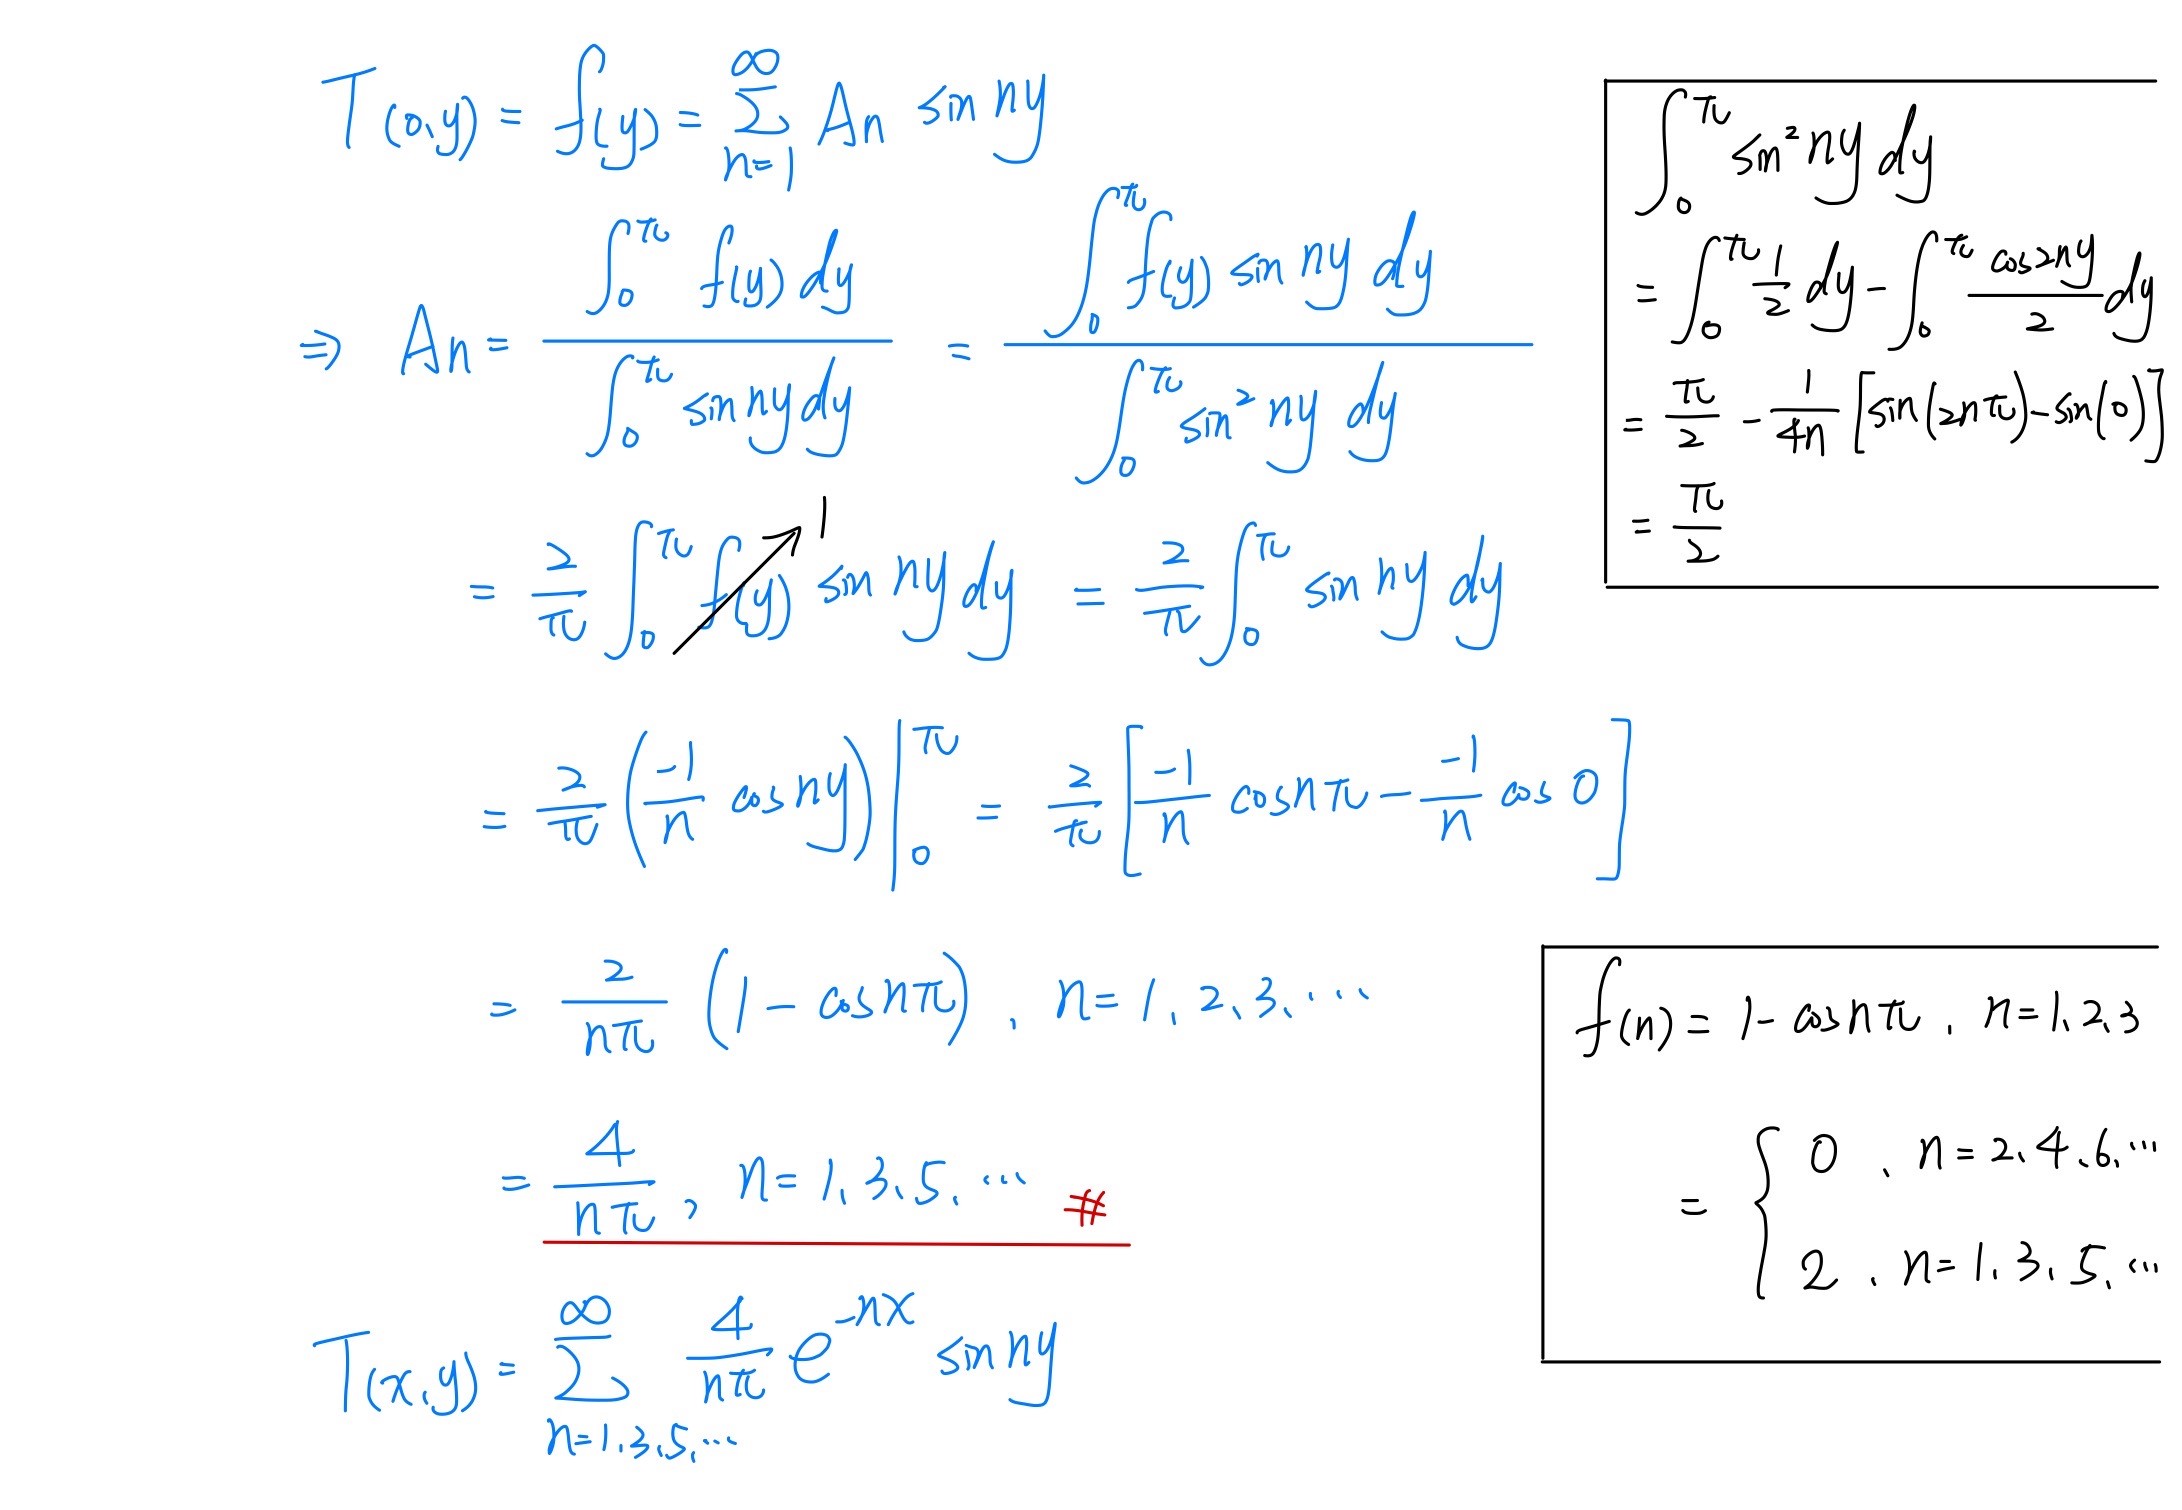 T(0,y) = f(y) = ∑_{n=1}^{∞} An sin ny
⇒ An = ∫_0^π f(y) dy / ∫_0^π sin ny dy = ∫_0^π f(y) sin ny dy / ∫_0^π sin² ny dy
= 2/π ∫_0^π f(y) ↗ 1 sin ny dy = 2/π ∫_0^π sin ny dy
= 2/π (-1/n cos ny) |_0^π = 2/π [-1/n cos nπ - -1/n cos 0]
= 2/nπ (1 - cos nπ), n = 1, 2, 3, ...
= 4/nπ, n = 1, 3, 5, ... #
T(x,y) = ∑_{n=1,3,5,...}^{∞} 4/nπ e^{-nx} sin ny
∫_0^π sin² ny dy
= ∫_0^π 1/2 dy - ∫_0^π cos 2ny / 2 dy
= π/2 - 1/4n [sin(2nπ) - sin(0)]
= π/2
f(n) = 1 - cos nπ, n = 1, 2, 3
= { 0, n = 2, 4, 6, ...
2, n = 1, 3, 5, ...